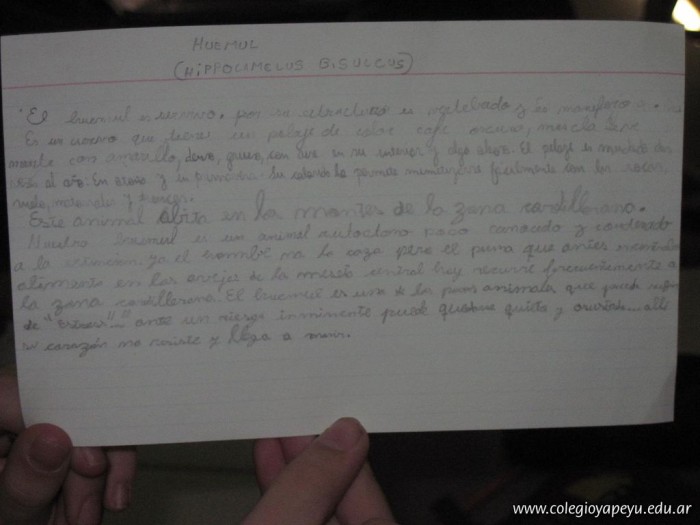 HUEMUL
(HIPPOCAMELUS BISULCUS)
El huemul es por su es vertebrado y es mamífero
Es un que tiene un pelaje de color café oscuro, mezcla
con amarillo, denso, grueso, con en su interior y algo El pelaje es mudado dos
al año. En otoño y en primavera. Su le permite facilmente con las rocas,
suelo, matorrales y troncos.
Este animal abita en los montes de la zona cordillerana.
Nuestro huemul es un animal autoctono poco conocido y condenado
a la extincion, ya el hombre no lo caza pero el puma que antes
alimento en las ovejas de la meseta central hoy recurre frecuentemente a
la zona cordillerana. El huemul es uno de los pocos animales que puede sufrir
de "estres" ante un riesgo inminente puede quedarse quieto y allí
su corazón no resiste y llega a morir.
www.colegioyapeyu.edu.ar